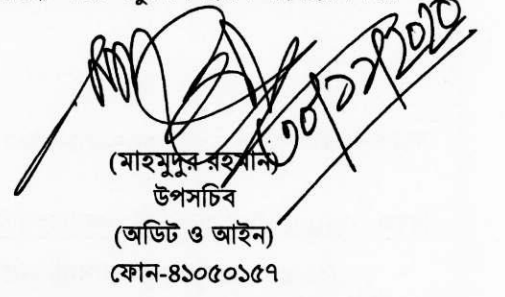 ৩০/১১/২০২০
(মাহমুদুর রহমান)
উপসচিব
(অডিট ও আইন)
ফোন-৪১০৫০১৫৭